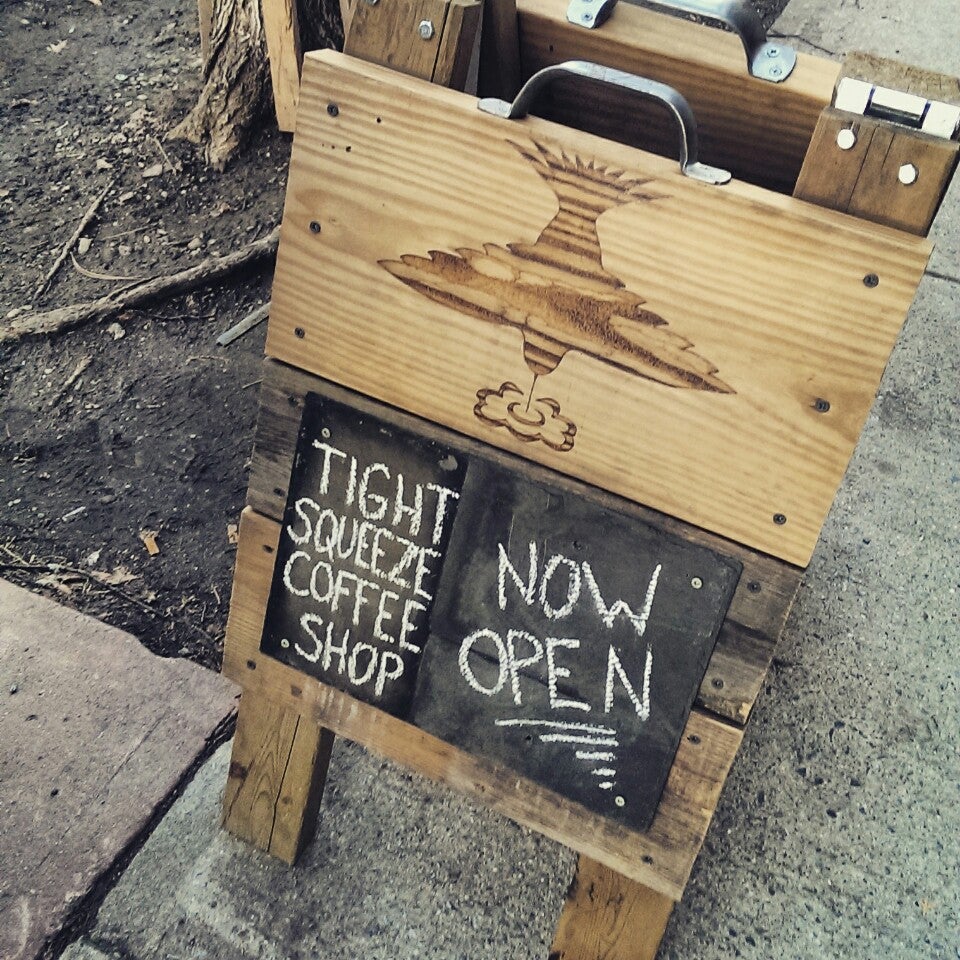 TIGHT
SQUEEZE
COFFEE
SHOP
NOW
OPEN